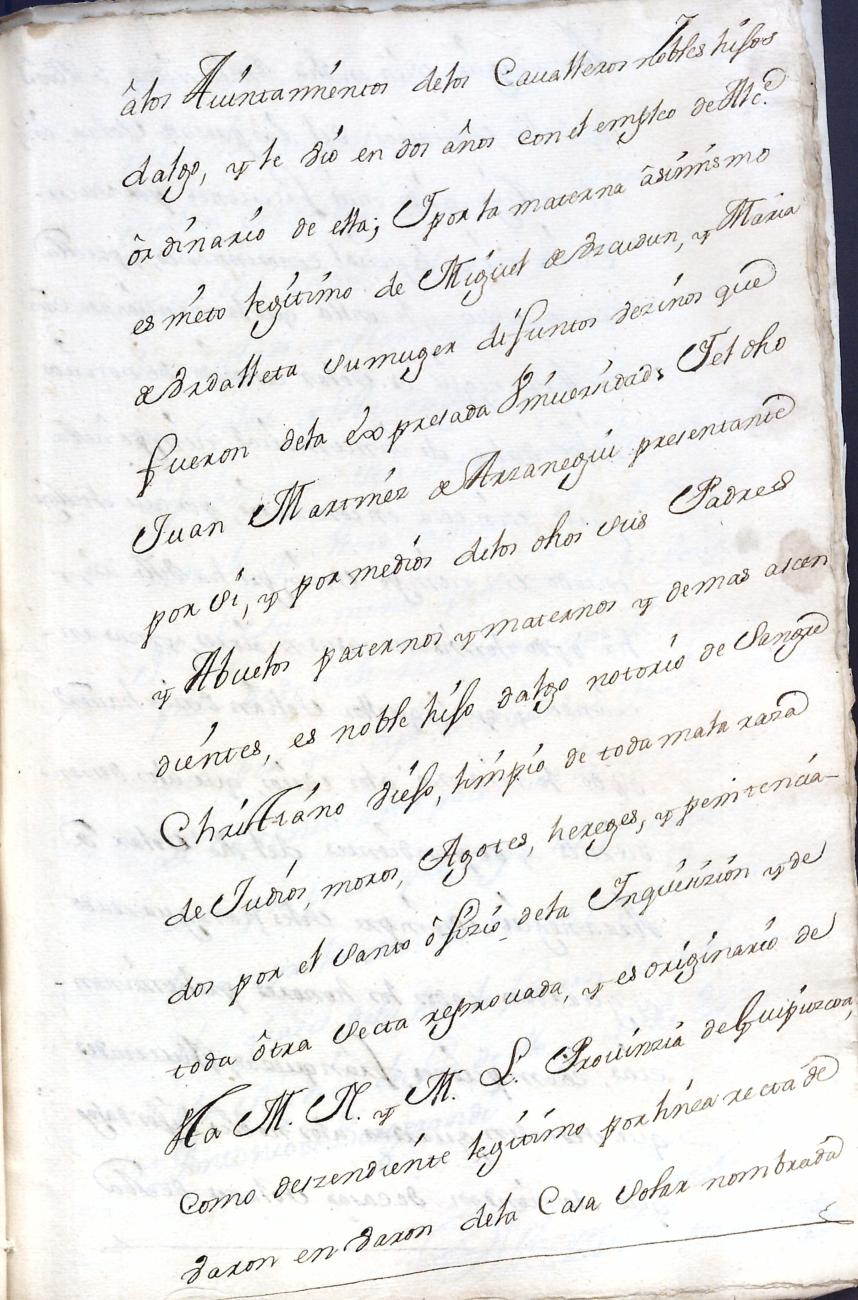 7
âlos Aiuntamientos delos Cavalleros nobles hijos
dalgo, y le dió en dos años con el empleo de Alc.e
ôrdinario de ella; Y por la materna âsimismo
es nieto legitimo de Miguel de Vraudun, y Maria
de Vrdalleta su muger difuntos vezinos que
fueron dela êxpresada Vniversidad. Y el dho
Juan Martinez de Arzanegui presentante
por si, y por medios delos dhos sus Padres
y Abuelos paternos y maternos y demas ascen
dientes, es noble hijo dalgo notorio de Sangre
Christiano viejo, limpio de toda mala raza
de Judios, moros, Agotes, hereges, y penitencia-
dos por el santo ôfizio dela Inquisizion y de
toda ôtra secta reprovada, y es originario de
Ha M. N. y M. L. Provinzia de Guipuzcoa,
Como deszendiente legitimo por linea recta de
varon en varon dela Casa Solar nombrada